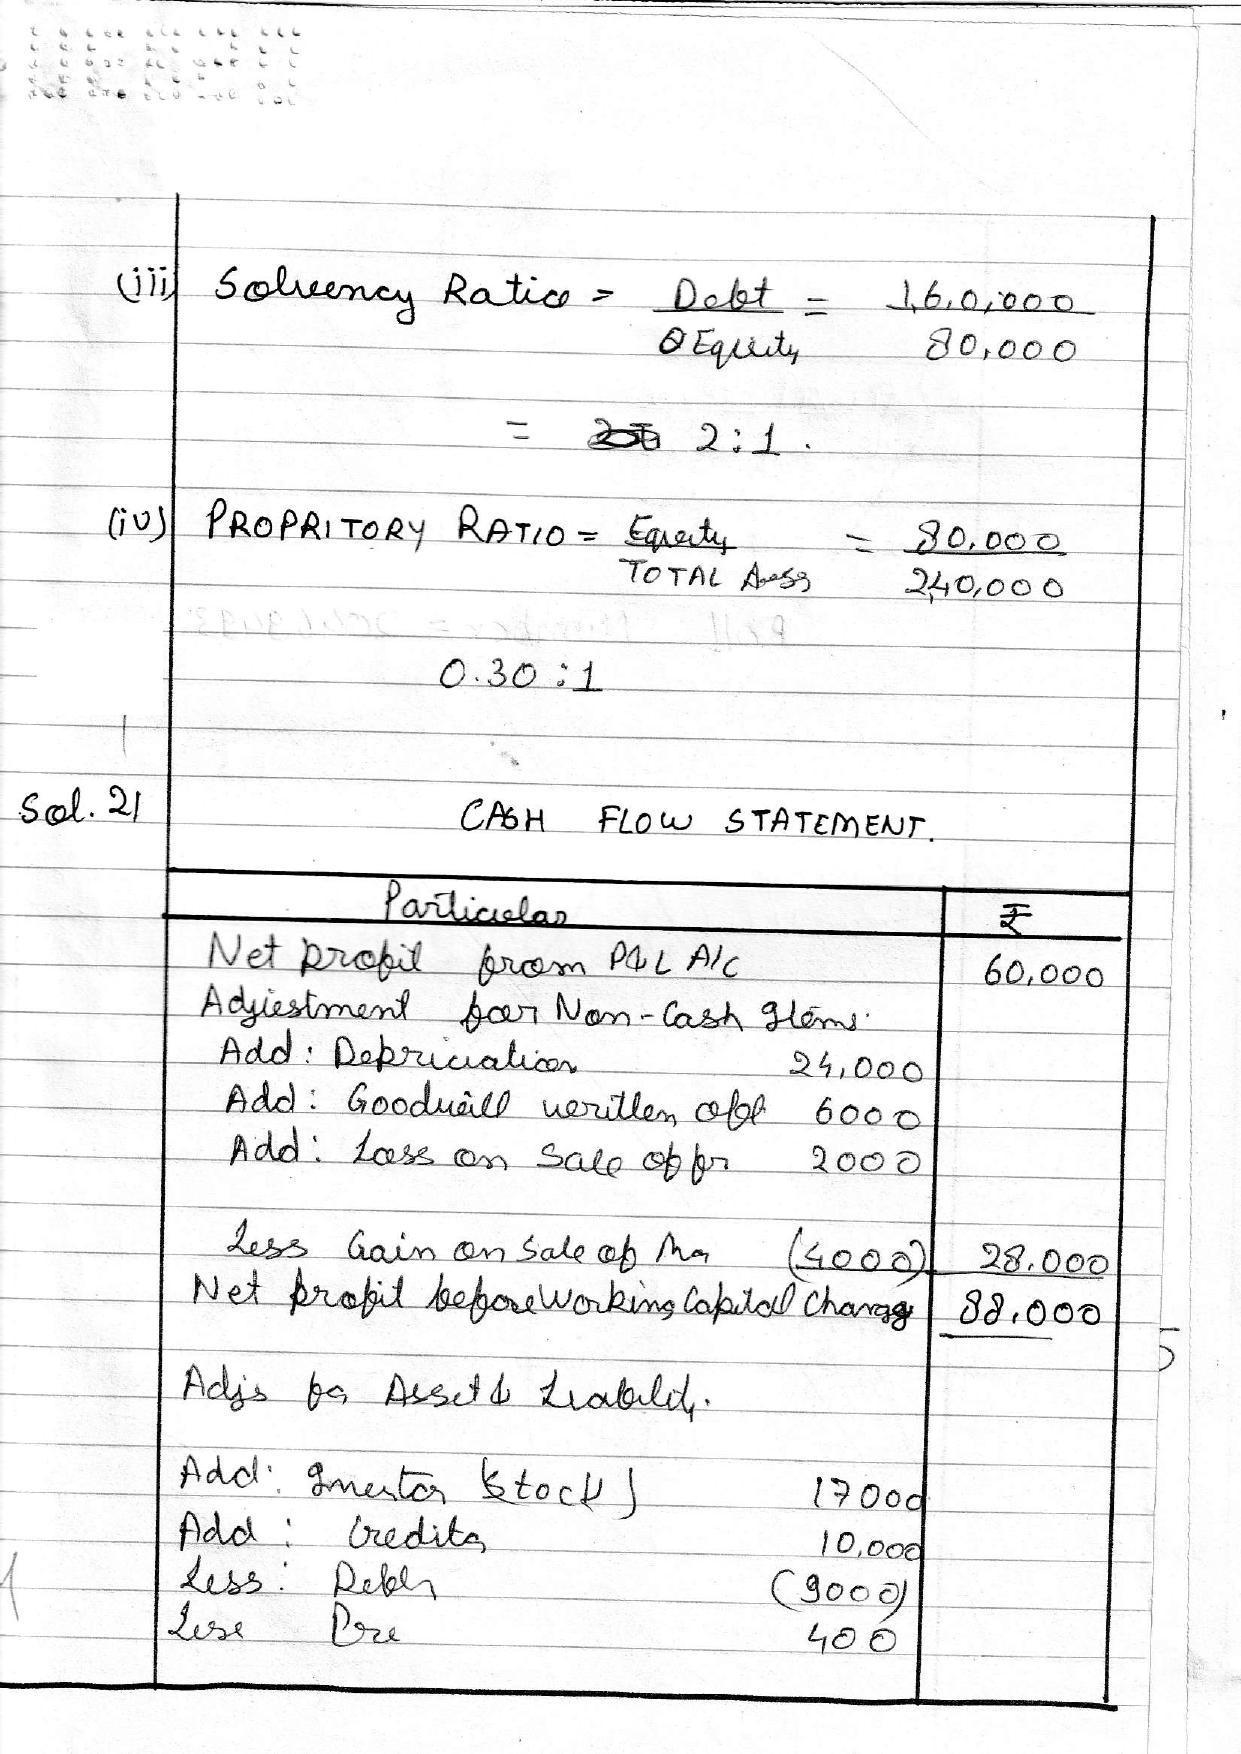 (iii) Solvency Ratio = Debt / Equity = 1,60,000 / 80,000
= 2:1.
(iv) PROPRITORY RATIO = Equity / TOTAL Asss = 80,000 / 2,40,000
0.30:1
Sol. 21 CASH FLOW STATEMENT.
Particular ₹
Net Profit from P&L A/c 60,000
Adjustment for Non-Cash Items.
Add: Depriciation 24,000
Add: Goodwill written off 6000
Add: Loss on Sale of fr 2000
Less Gain on Sale of Ma (4000) 28,000
Net profit before Working Capital Change 88,000
Adjs for Asset & Liability.
Add: (Stock) 17000
Add: Credits 10,000
Less: Debtr (9000)
Less Pre 400